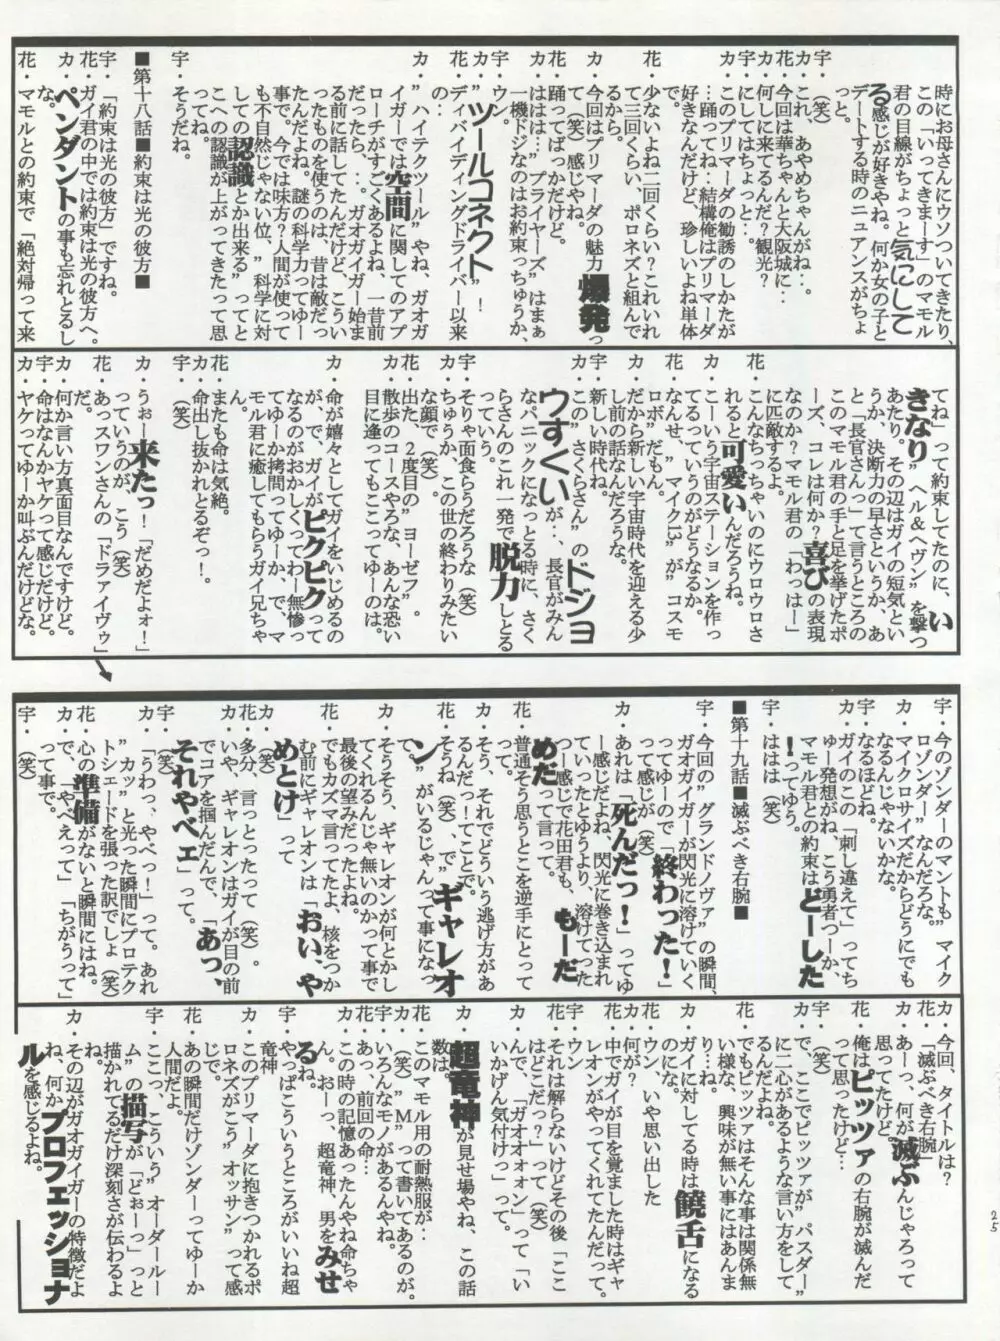 時にお母さんにウソついてきたり、
この「いってきまーす」のマモル
君の目線がちょっと気にして
る感じが好きやね。何か女の子と
デートする時のニュアンスがちょ
っと。
宇・(笑)
カ・これ、あやめちゃんがね‥。
花・今回は華ちゃんと大阪城に‥
カ・何しに来てるんだ?観光?
宇・にしてはちょっと‥。
カ・このプリマーダの勧誘のしかたが
…踊ってね‥結構俺はプリマーダ
好きなんだけど、珍しいよね単体
で
花・少ないよね二回くらい?これいれ
て三回くらい、ポロネズと組んで
るから。
カ・今回はプリマーダの魅力爆発っ
て(笑)感じやね。
花・踊ってばっかだけど。
カ・ははは…"プライヤーズ"はまぁ
一機ドジなのはお約束っちゅうか、
宇・ウン。
カ・"ツールコネクト"!
花・ディバイディングドライバー以来
の‥
カ・"ハイテクツール"やね、ガオガ
イガーでは空間に関してのアプ
ローチがすごくあるよね、一昔前
だったら、‥。ガオガイガー始ま
る前に話してたんだけど、こうい
ったものを使うのは、昔は敵だっ
たんだよね。謎の科学力ってゆー
事で、今では味方?人間が使って
も不自然じゃない位、"科学に対
しての認識とか出来る"ってと
こへの認識が上がってきたって思
ってね。
宇・そうだね。
■第十八話■約束は光の彼方■
宇・「約束は光の彼方」ですね。
花・ガイ君の中では約束は光の彼方へ。
カ・ペンダントの事も忘れとるし
な。
花・マモルとの約束で「絶対帰って来
てね」って約束してたのに、い
きなり"ヘル&ヘヴン"を撃つ
あたり。その辺はガイの短気とい
うか、決断力の早さというか、あ
と「長官さんっ」て言うところの
このマモル君の手と足を挙げたポ
ーズ、コレは何か?喜びの表現
なのか?マモル君の「わっはー」
に匹敵するよ。
花・こんなちっちゃいのにウロウロさ
れると可愛いんだろうね。
カ・こーいう宇宙ステーションを作っ
てるっていうのがどうなるか。
花・なんせ、"マイク13"が"コスモ
ロボ"だもん。
カ・だから新しい宇宙時代を迎える少
し前の話なんだろうな。
宇・新しい時代ね。
カ・この"さくらさん"のドジョ
ウすくいが‥、長官がみん
なパニックになっとる時に、さく
らさんのこれ一発で脱力しとる
っていう。
宇・そりゃ面食らうだろうな(笑)
カ・ちゅうか、この世の終わりみたい
な顔で(笑)。
花・出た、2度目の"ヨーゼフ"。
カ・散歩のコースやろな、あんな恐い
目に逢ってもここってゆーのは。
カ・命が嬉々としてガイをいじめるの
が、で、ガイがピクピクって
なるのがおかしくってわー無惨っ
てゆーか拷問ってゆーか、で、マ
モル君に癒してもらうガイ兄ちゃ
ん。
花・またも命は気絶。
カ・命出し抜かれとるぞっ!。
宇・(笑)
カ・うぉー来たっ!「だめだよォ!」
っていうのが、こう(笑)
花・あっスワンさんの「ドラァイヴゥ」
だ。
カ・何か言い方真面目なんですけど。
花・命はなんかヤケって感じだけど。
カ・ヤケってゆーか叫ぶんだけどな。
宇・今のゾンダーのマントも"マイク
ロゾンダー"なんだろな。
カ・マイクロサイズだからどうにでも
なるんじゃないかな。
花・なるほどね。
カ・ガイのこの「刺し違えて」ってち
ゅー発想がね、こう勇者つーか、
マモル君との約束はどーした
!ってゆう。
宇・ははは(笑)
■第十九話■滅ぶべき右腕■
宇・今回の"グランドノヴァ"の瞬間、
ガオガイガーが閃光に溶けていく
ってゆーので「終わった!」
って感じが(笑)
カ・あれは「死んだっ!」ってゆ
ー感じだよね、閃光に巻き込まれ
ていったとゆうより、溶けてった
つー感じで花田君も、もーだ
めだって言って。
花・普通そう思うとこを逆手にとって
カ・そう、それでどういう逃げ方があ
るんだっ!てことで。
花・そうね(笑)、で"ギャレオ
ン"がいるじゃんって事になっ
て、
カ・そうそう、ギャレオンが何とかし
てくれるんじゃ無いのかって事で
最後の望みだったよね。
花・でもカズマ言ってたよ、核をつか
む前にギャレオンは「おい、や
めとけ」って
カ・(笑)
花・多分、言っとったって(笑)。
カ・いや、ギャレオンはガイが目の前
でコアを掴んだんで、「あっ、
それやベェ」って。
宇・(笑)
カ・「うわっ、やべっ!」って。あれ
"カッ"と光った瞬間にプロテク
トシェードを張った訳でしょ(笑)
花・心の準備がないと瞬間にはね。
カ・で、「やべえって」「ちがうって」
って事で。
宇・(笑)
カ・今回、タイトルは?
花・「滅ぶべき右腕」
カ・あーっ、何が滅ぶんじゃろって
思ってたけど。
花・俺はピッツァの右腕が滅んだ
って思ったけど…
宇・(笑)
カ・で、ここでピッツァが"パスダー"
に二心があるような言い方をして
るんだよね。
花・でもピッツァはそんな事は関係無
い様な、興味が無い事にはあんま
り…ね。
カ・ガイに対してる時は饒舌になる
のにな。
花・ウン、いや思い出した
カ・何が?
花・中でガイが目を覚ました時はギャ
レオンがやってくれてたんだって。
宇・ウン
カ・それは解らないけどその後「ここ
はどこだっ?」って(笑)
カ・んで、「ガオオォォン」って「い
いかげん気付けっ」って。
カ・超竜神が見せ場やね、この話
数は。
花・このマモル用の耐熱服が‥
カ・(笑)"M"って書いてあるのが。
宇・いろんなモノがあるんやね。
花・あっ、前回の命…
カ・この時の記憶あったんやね命ちゃ
ん。おーっ、超竜神、男をみせ
るね。
宇・やっぱこういうところがいいね超
竜神
カ・このプリマーダに抱きつかれるポ
ロネズがこう"オッサン"って感
じで。
花・あの瞬間だけゾンダーってゆーか
人間だよ。
宇・ここっ、こういう"オーダールー
ム"の描写が「どぉーっ」っと
描かれてるだけ深刻さが伝わるよ
ね。
カ・その辺がガオガイガーの特徴だよ
ね、何かプロフェッショナ
ルを感じるよね。
25